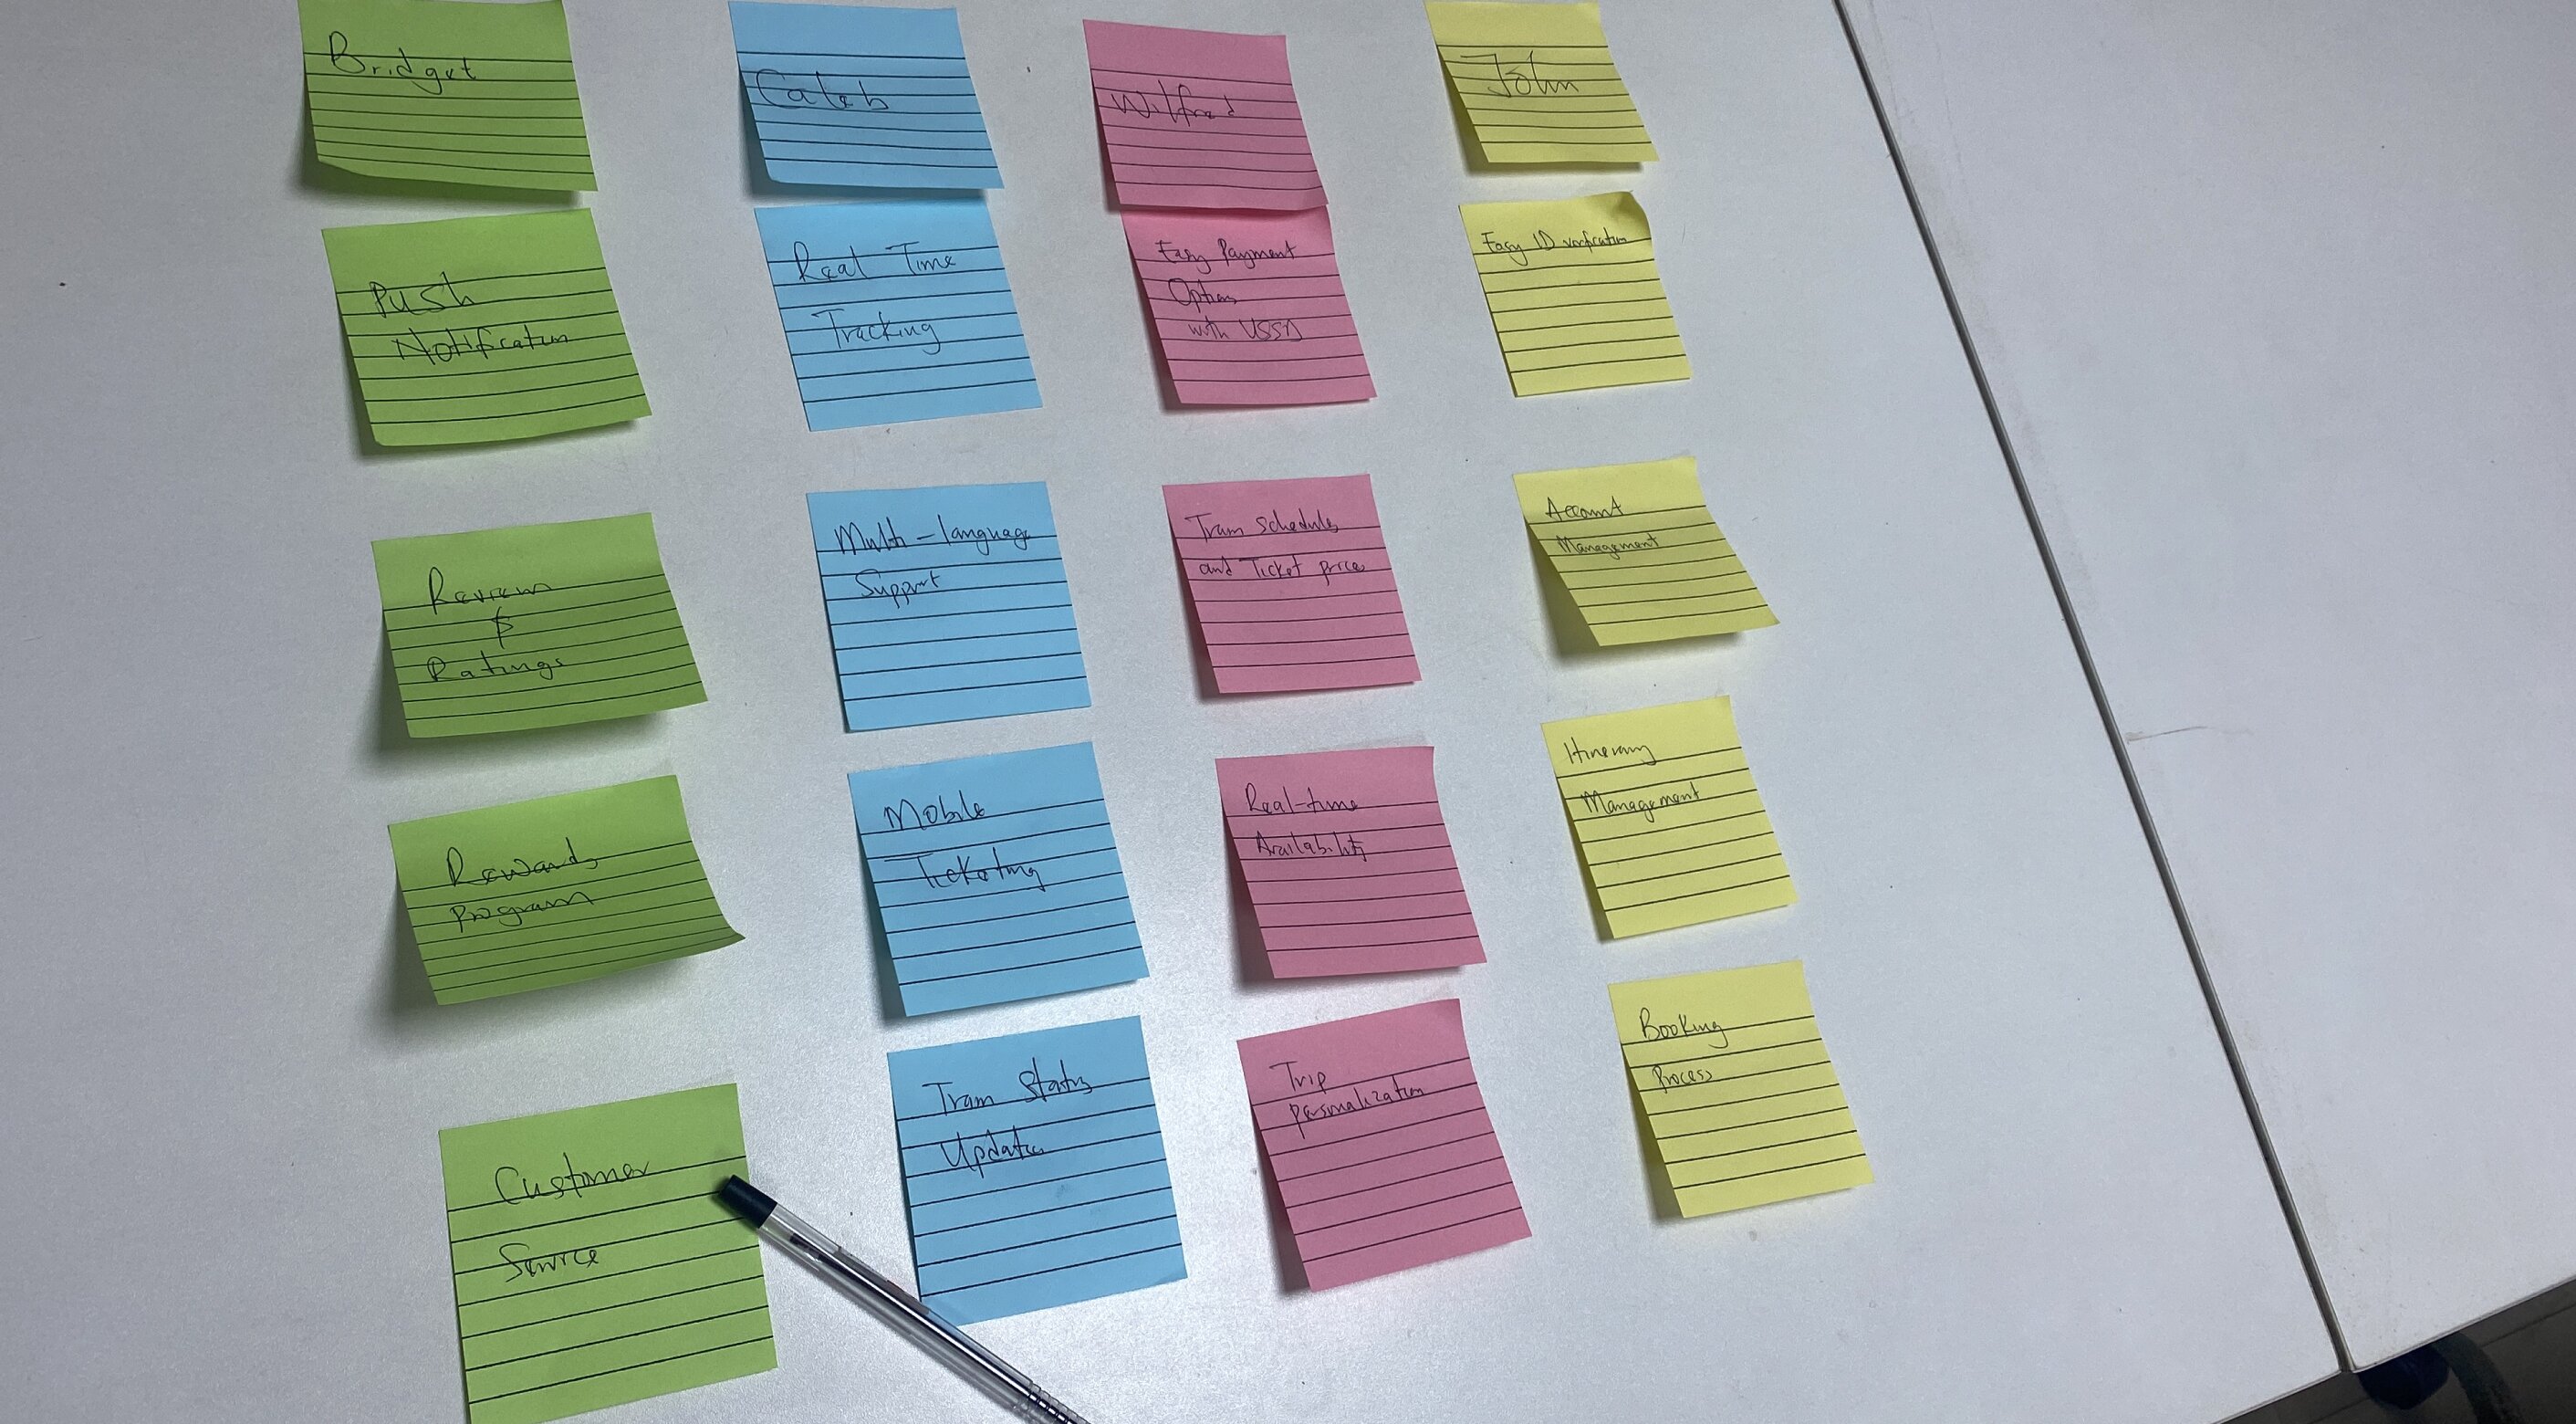 Bridget
Push
Notification
Reviews
&
Ratings
Rewards
Program
Customer
Service
Caleb
Real Time
Tracking
Multi-language
Support
Mobile
Ticketing
Tram Status
Updates
Wilfred
Easy Payment
Options
with USSD
Tram schedules
and Ticket prices
Real-time
Availability
Trip
personalization
John
Easy ID verification
Account
Management
Itinerary
Management
Booking
Process